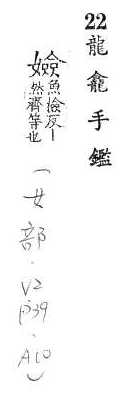 22龍龕手鑑
嬐魚撿反丨
然齊等也
(女部.V2
p39.
A10)